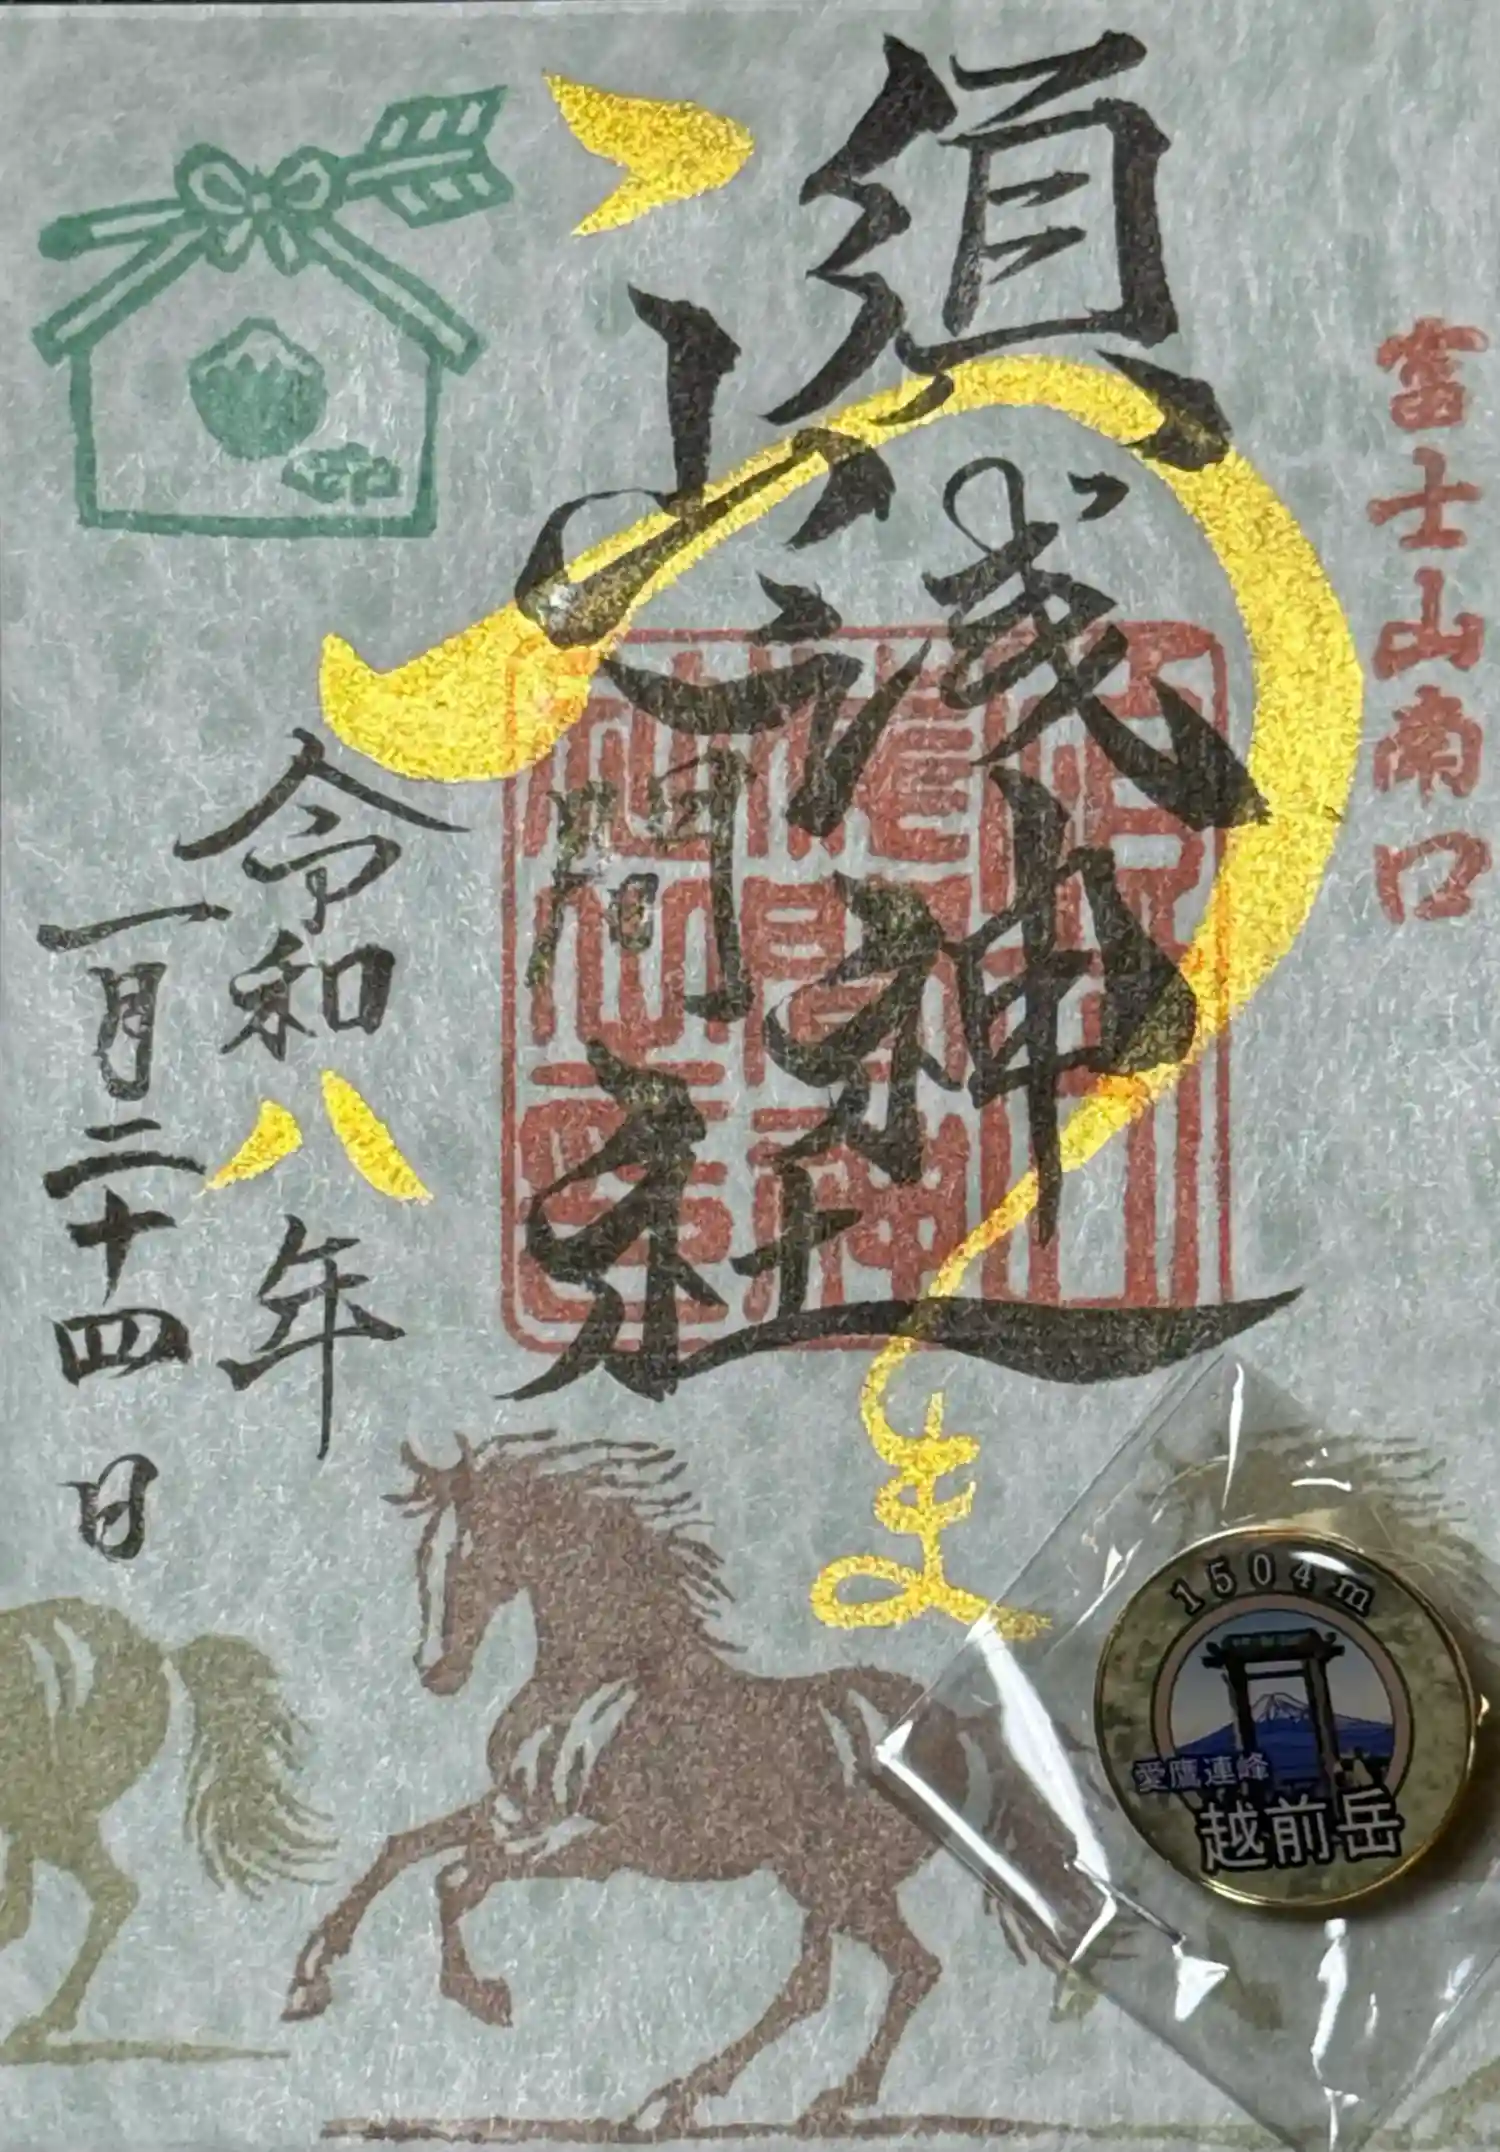 富士山南口
須山
浅間
神社
うま
令和八年
一月二十四日
1504m
愛鷹連峰
越前岳